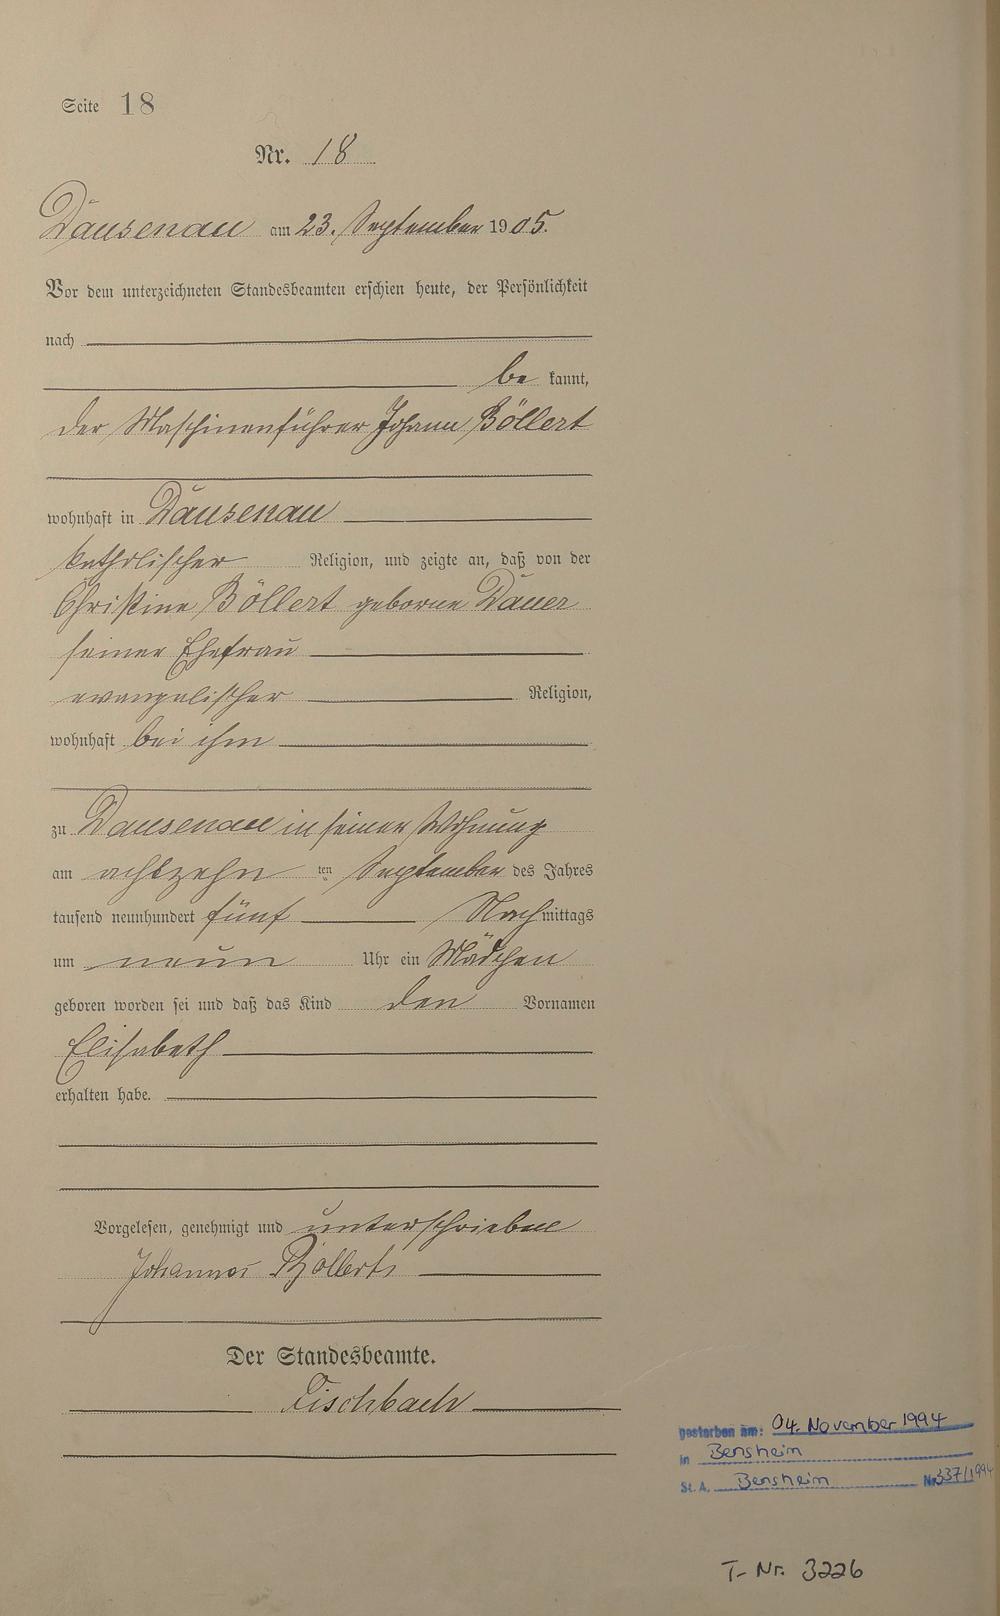 Seite 18
Nr. 18
Dausenau am 23. September 1905.
Vor dem unterzeichneten Standesbeamten erschien heute, der Persönlichkeit
nach
be kannt,
der Maschinenführer Johann Böllert
wohnhaft in Dausenau
katholischer Religion, und zeigte an, daß von der
Christine Böllert geborne Dauer
seiner Ehefrau
evangelischer Religion,
wohnhaft bei ihm
zu Dausenau in seiner Wohnung
am achtzehn ten September des Jahres
tausend neunhundert fünf Nachmittags
um neun Uhr ein Mädchen
geboren worden sei und daß das Kind den Vornamen
Elisabeth
erhalten habe.
Vorgelesen, genehmigt und unterschrieben
Johannes Böllert
Der Standesbeamte.
Fischbach
gestorben am: 04. November 1994
in Bensheim
St. A. Bensheim Nr. 337/1994
T-Nr. 3226